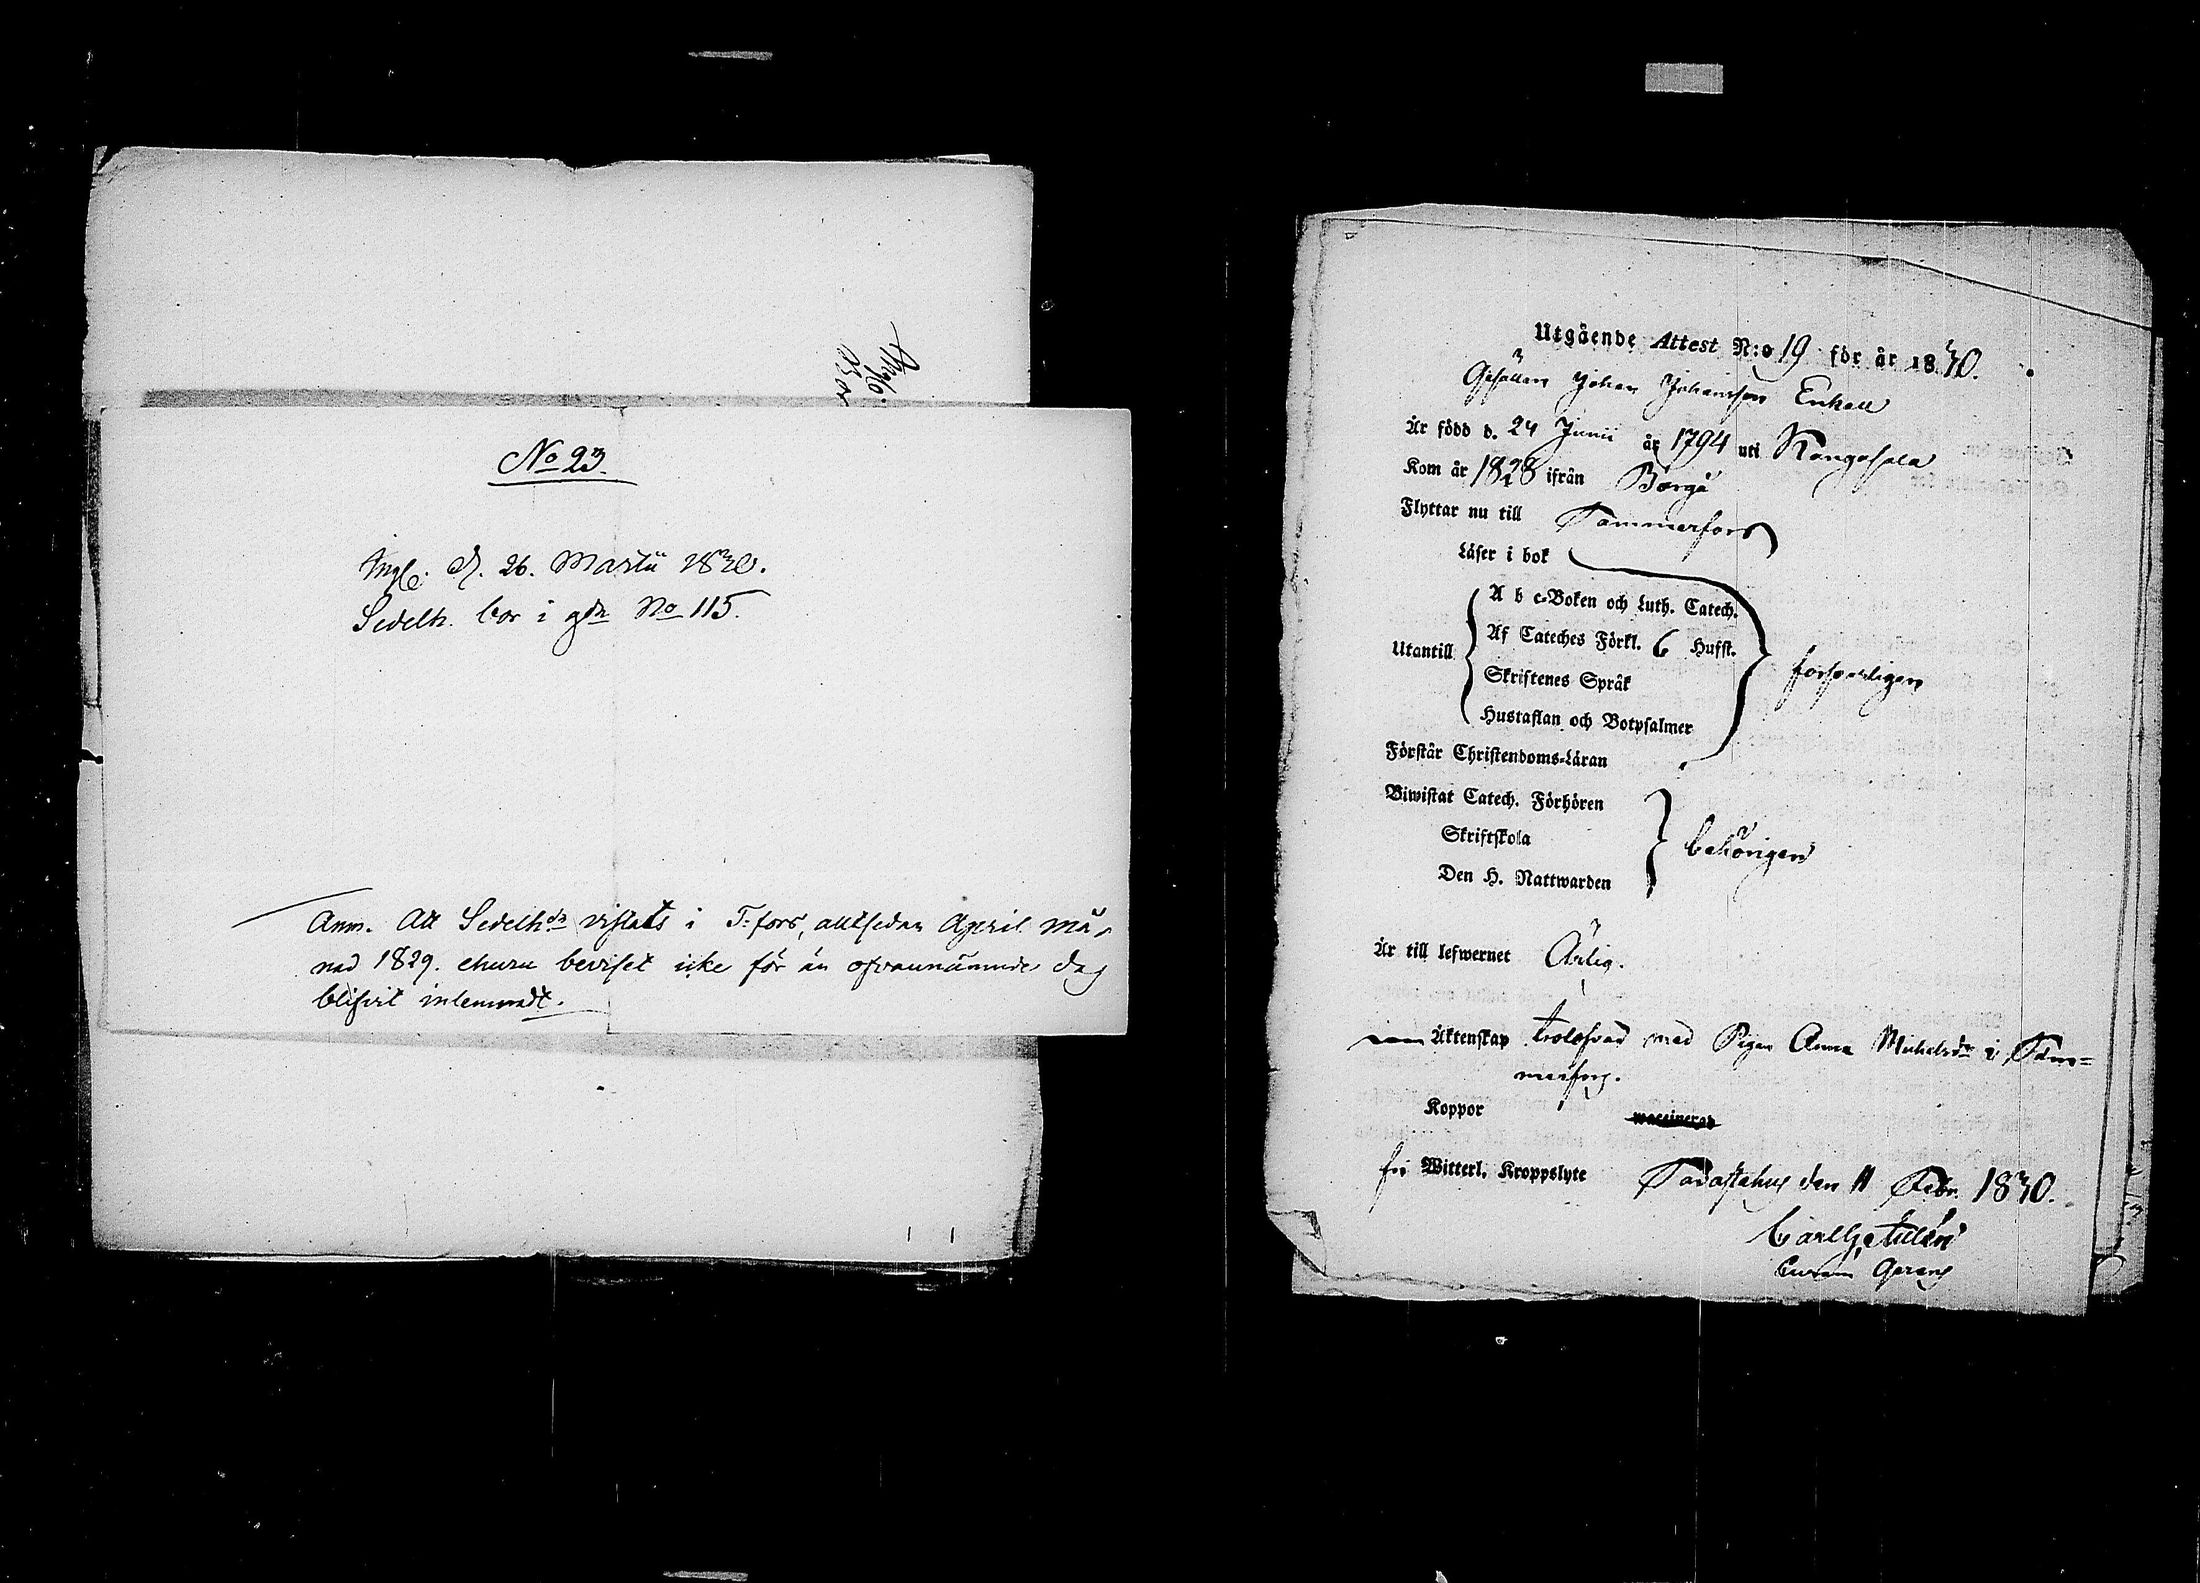 No 23.
Ingle. d. 26. Martii 1830.
Sedelh. bor i gdn No 115.
Anm. Att Sedelhn vistats i T:fors, alltsedan April må-
nad 1829. ehuru beviset icke för än ofvannämnde dag
blifvit inlemnadt.
Utgående Attest N:o 19 för år 1830.
Gesällen Johan Johansson Enkell
Är född d. 24 Junii år 1794 uti Kangasala
Kom år 1828 ifrån Borgå
Flyttar nu till Tammerfors
Läser i bok
A b c-Boken och Luth. Catech.
Utantill Af Cateches Förkl. 6 Hufst.
försvarligen
Skriftenes Språk
Hustaflan och Botpsalmer
Förstår Christendoms-Läran
Biwistat Catech. Förhören
Skriftskola
behörigen
Den H. Nattwarden
Är till lefwernet Ärlig.
Äktenskap trolofvad med Pigan Anna Michelsdr i Tam=
merfors.
Koppor waccinerad
fri Witterl. Kroppslyte Tavastehus den 11 Febr. 1830.
Carl